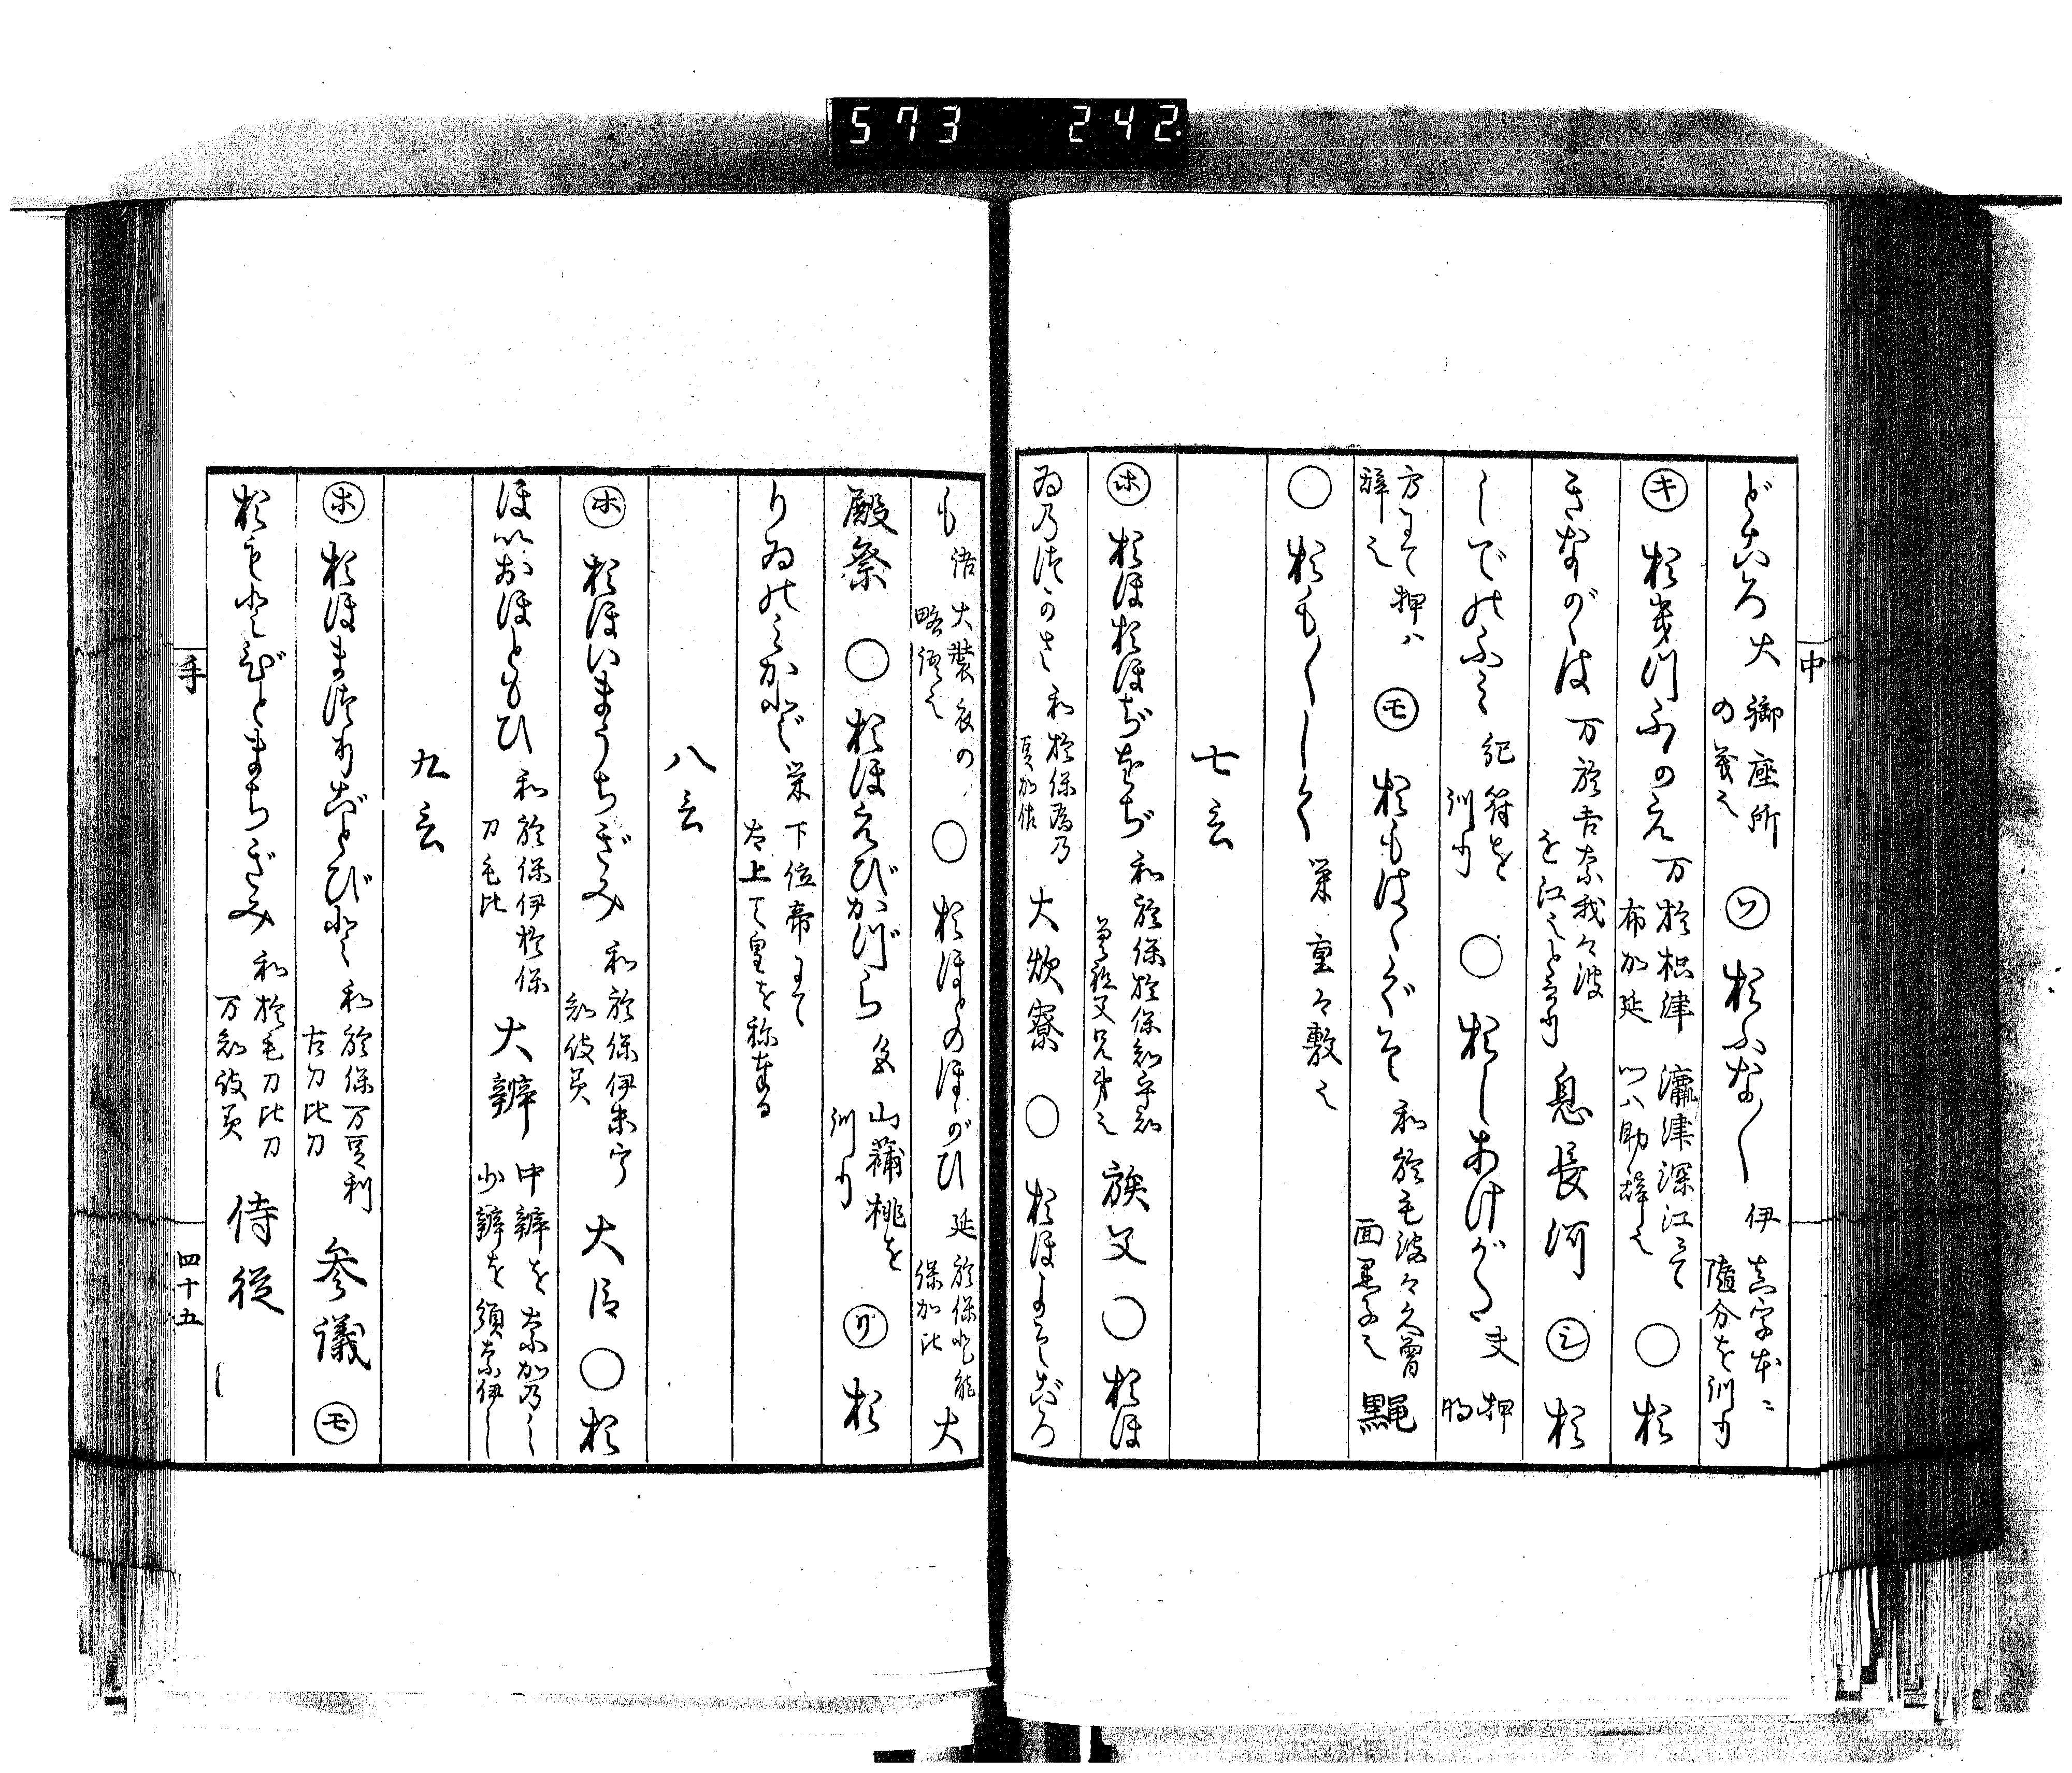 573 242
中
どころ 大 御座所の義也 ㋞ おふな〳〵 伊 真字本ニ随分を訓り
㋖ おきつふのえ 万 於枳津布加延 瀛津深江にてツハ助辞也 ○ お
きながゝは 万 於吉奈我々波を江之と云り 息長河 ㋛ お
しでのふみ 紀 符を訓り ○ おしあけがた 夫 押明
方にて押ハ辞也 ㋲ おもはゝぐそ 和 於毛波々久曽 面黒子也 黒黽
○ おも〳〵しく 栄 重々敷也
七言
㋭ おほおほぢをぢ 和 於保於保知乎知 曽祖父兄弟也 族父 ○ おほ
ゐのつかさ 和 於保為乃豆加佐 大炊寮 ○ おほよそごろ
も 語 大装衣の略語也 ○ おほとのほがひ 延 於保登能保加比 大
殿祭 ○ おほえびかづら 名 山蒲桃を訓り ㋷ お
りゐのみかど 栄 下位帝にて太上天皇を称奉る
八言
㋭ おほいまうちぎみ 和 於保伊万宇知岐美 大臣 ○ お
ほいおほともひ 和 於保伊於保刀毛比 大辨 中辨を奈加乃之少辨を須奈伊し
九言
㋭ おほまつりごとびと 和 於保万豆利古刀比刀 参議 ㋲
おもとびとまちぎみ 和 於毛刀比刀万知岐美 侍従
手
四十五